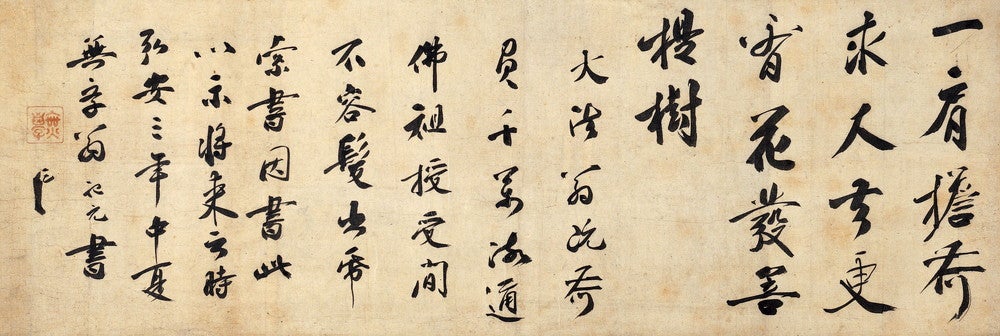 一肩擔荷
求人去更
看花發菩
提樹
大法翁既荷
負千萬流通
佛祖授受間
不容髮出帋
索書因書此
以示將来云時
弘安三年中夏
無学翁祖元書